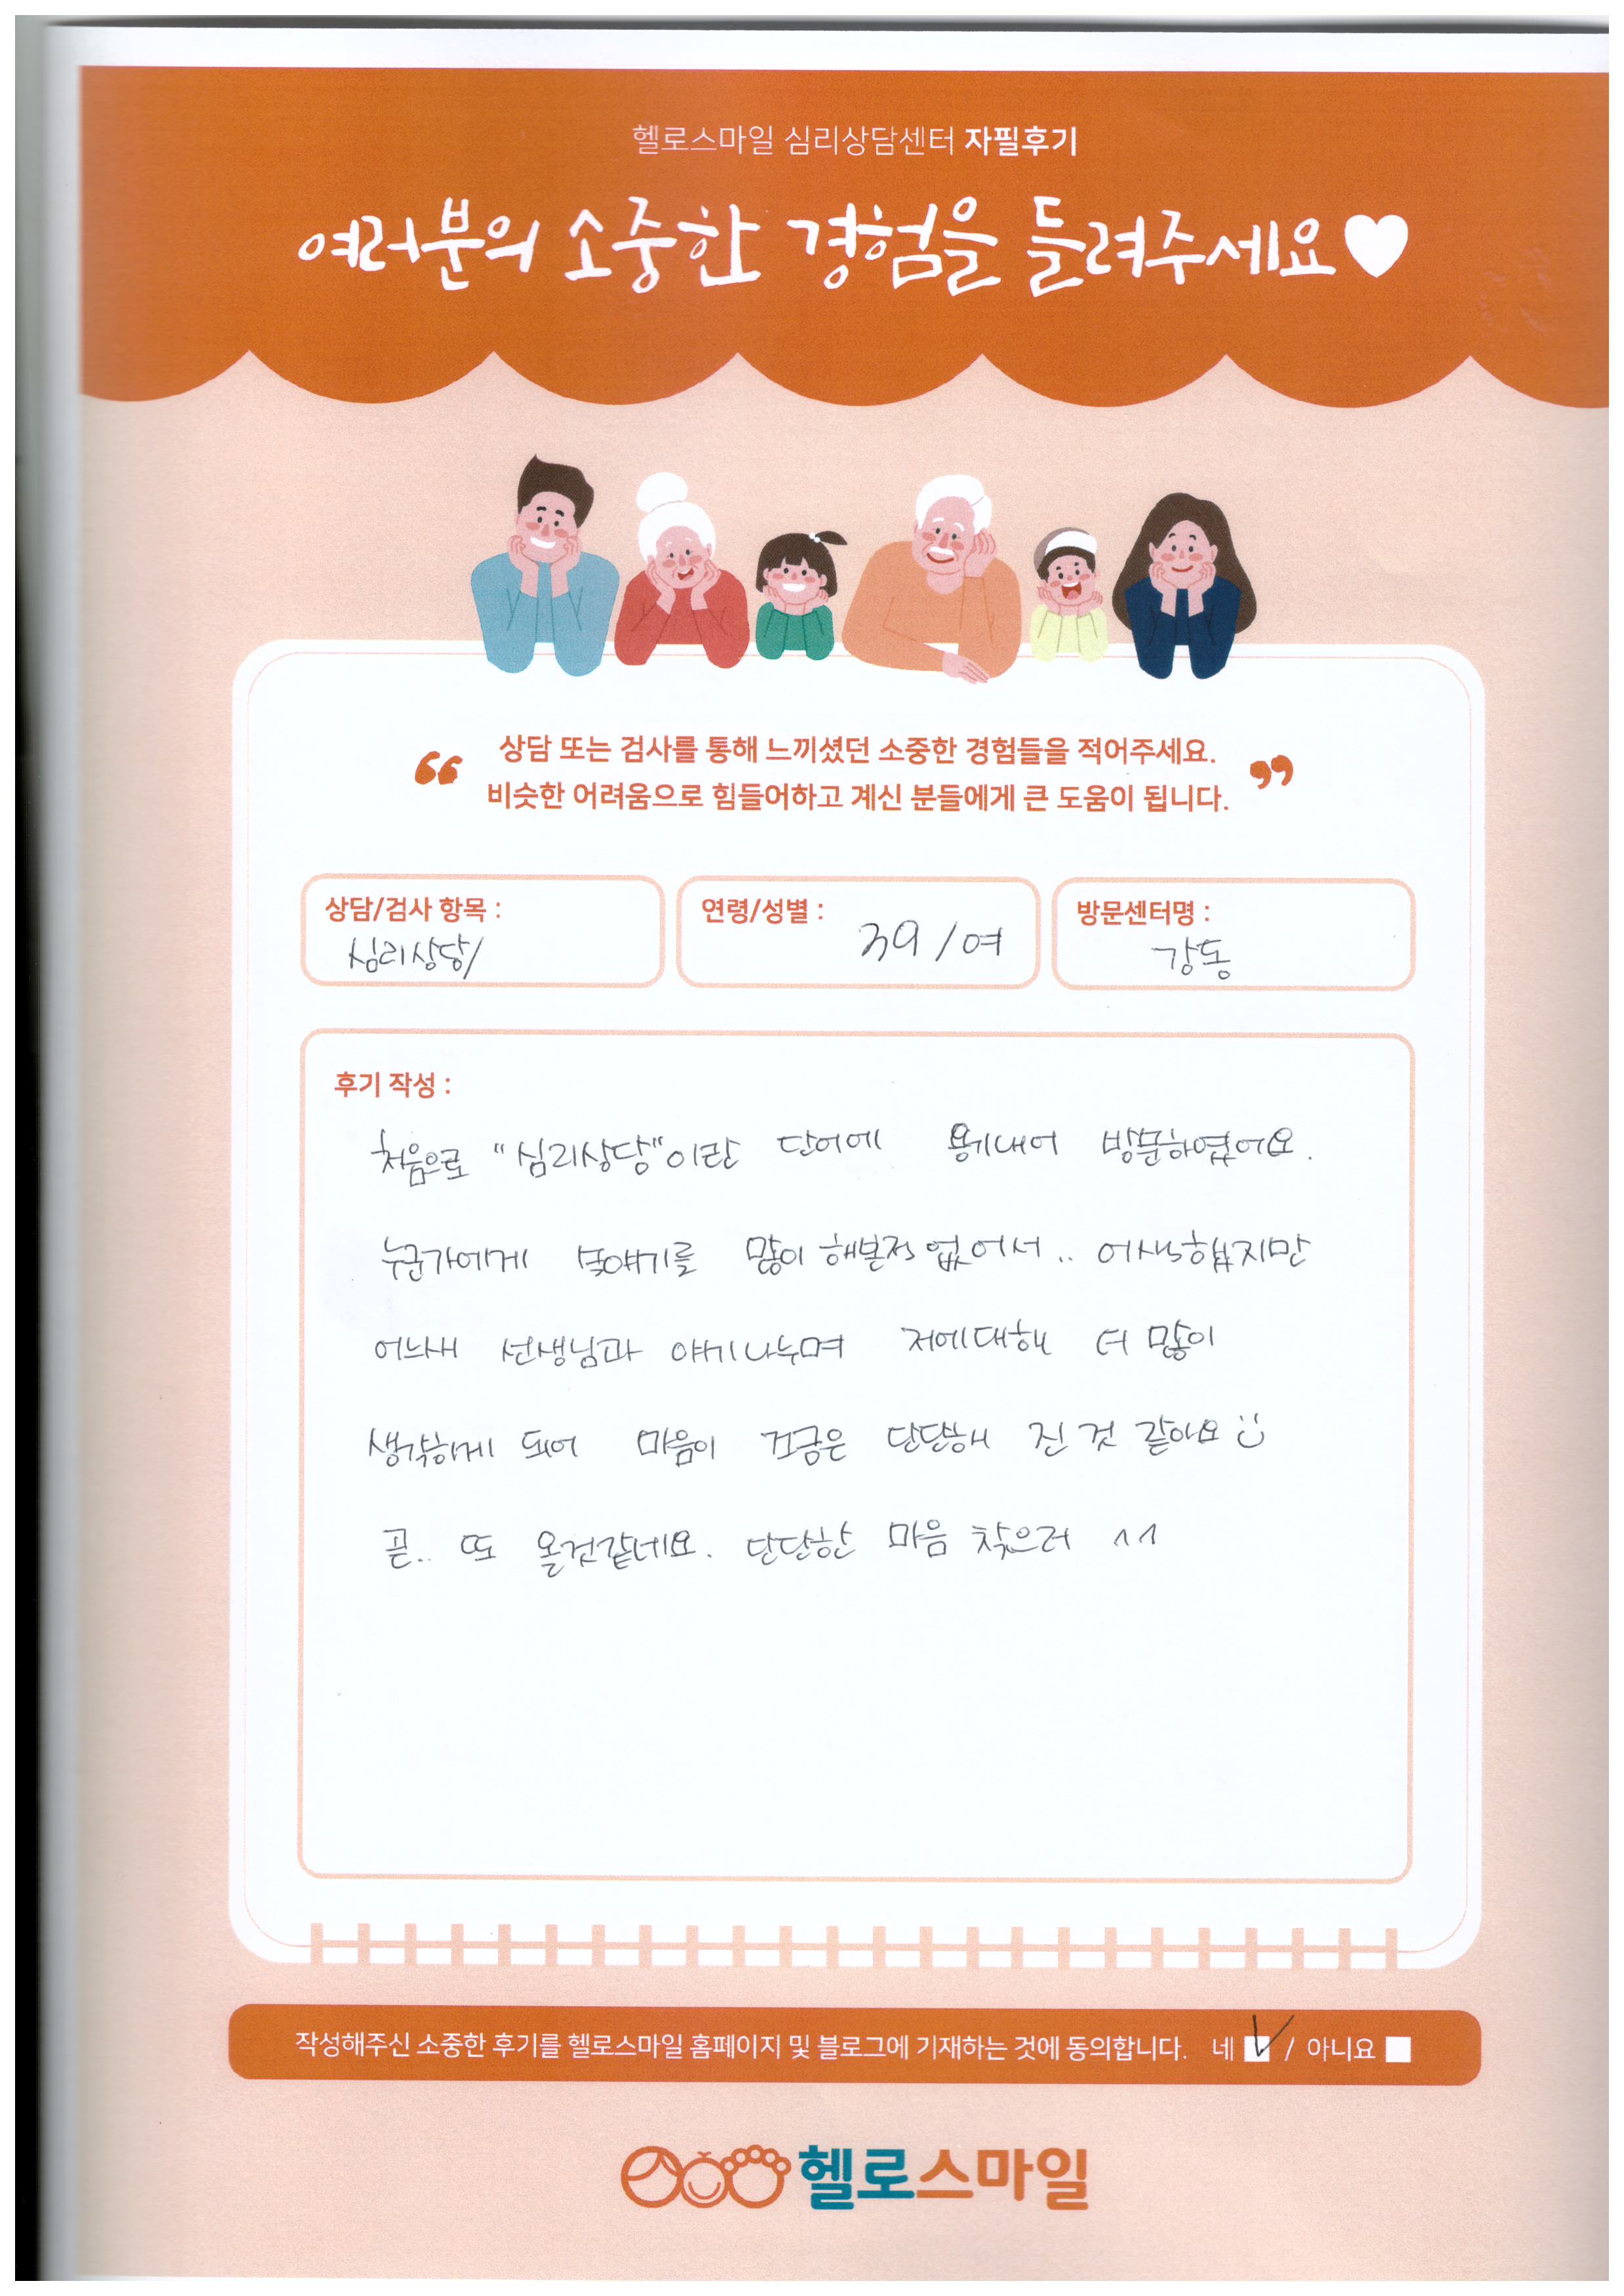 헬로스마일 심리상담센터 자필후기
여러분의 소중한 경험을 들려주세요
“ 상담 또는 검사를 통해 느끼셨던 소중한 경험들을 적어주세요. ”
비슷한 어려움으로 힘들어하고 계신 분들에게 큰 도움이 됩니다.
상담/검사 항목 :
심리상담/
연령/성별 :
39/여
방문센터명 :
강동
후기 작성 :
처음으로 "심리상담"이란 단어에 용기내어 방문하였어요.
누군가에게 얘기를 많이 해본적 없어서.. 어색했지만
어느새 선생님과 얘기나누며 저에대해 더 많이
생각하게 되어 마음이 조금은 단단해 진 것 같아요
곧.. 또 올것같네요. 단단한 마음 찾으러 ^^
작성해주신 소중한 후기를 헬로스마일 홈페이지 및 블로그에 기재하는 것에 동의합니다. 네 / 아니요
헬로스마일